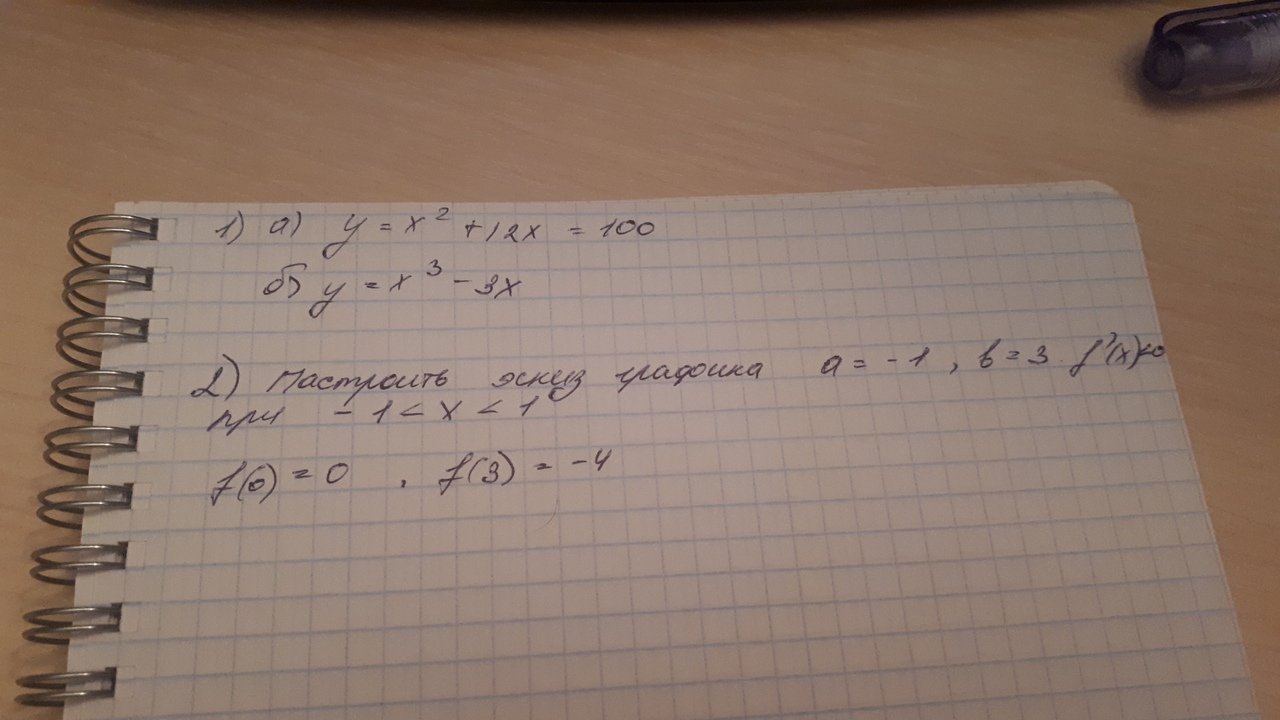 1) а) y = x² + 12x = 100
б) y = x³ - 3x
2) Настроить эскиз графика a = -1, b = 3 f'(x)<0
при -1 < x < 1
f(0) = 0, f(3) = -4